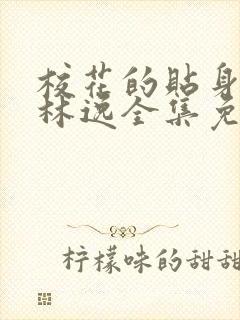 校花的贴身
林逸全集免
柠檬味的甜甜